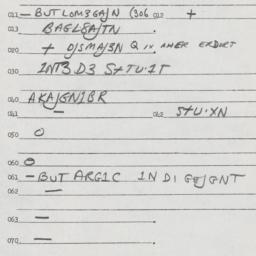 011 — BUT LOM3GA/N (306 012 +
013 BAGL8A/TN .
020 + D/SMA/3N Q IN AMER EXPORT
030 INT3 D3 S+TU·IT
040 AKA/GNIBR
041 — 042 S+U·XN
050 O
060 O
061 — BUT ARG1C IN DI GE/GNT
062 —
063 — .
070 — .